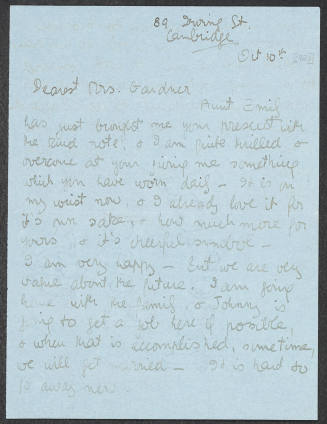 89 Irving St.
Cambridge
Oct 10th
Dearest Mrs. Gardner
Aunt Emily
has just brought me your present with
the kind note, & I am quite thrilled &
overcome at your giving me something
which you have worn daily — It is on
my wrist now, & I already love it for
it's own sake, & how much more for
yours, & it's cheerful
I am very happy — But we are very
vague about the future. I am going
home with the family, & Johnny is
going to get a job here if possible,
& when that is accomplished, sometime,
we will get married — It is hard to
go away now.